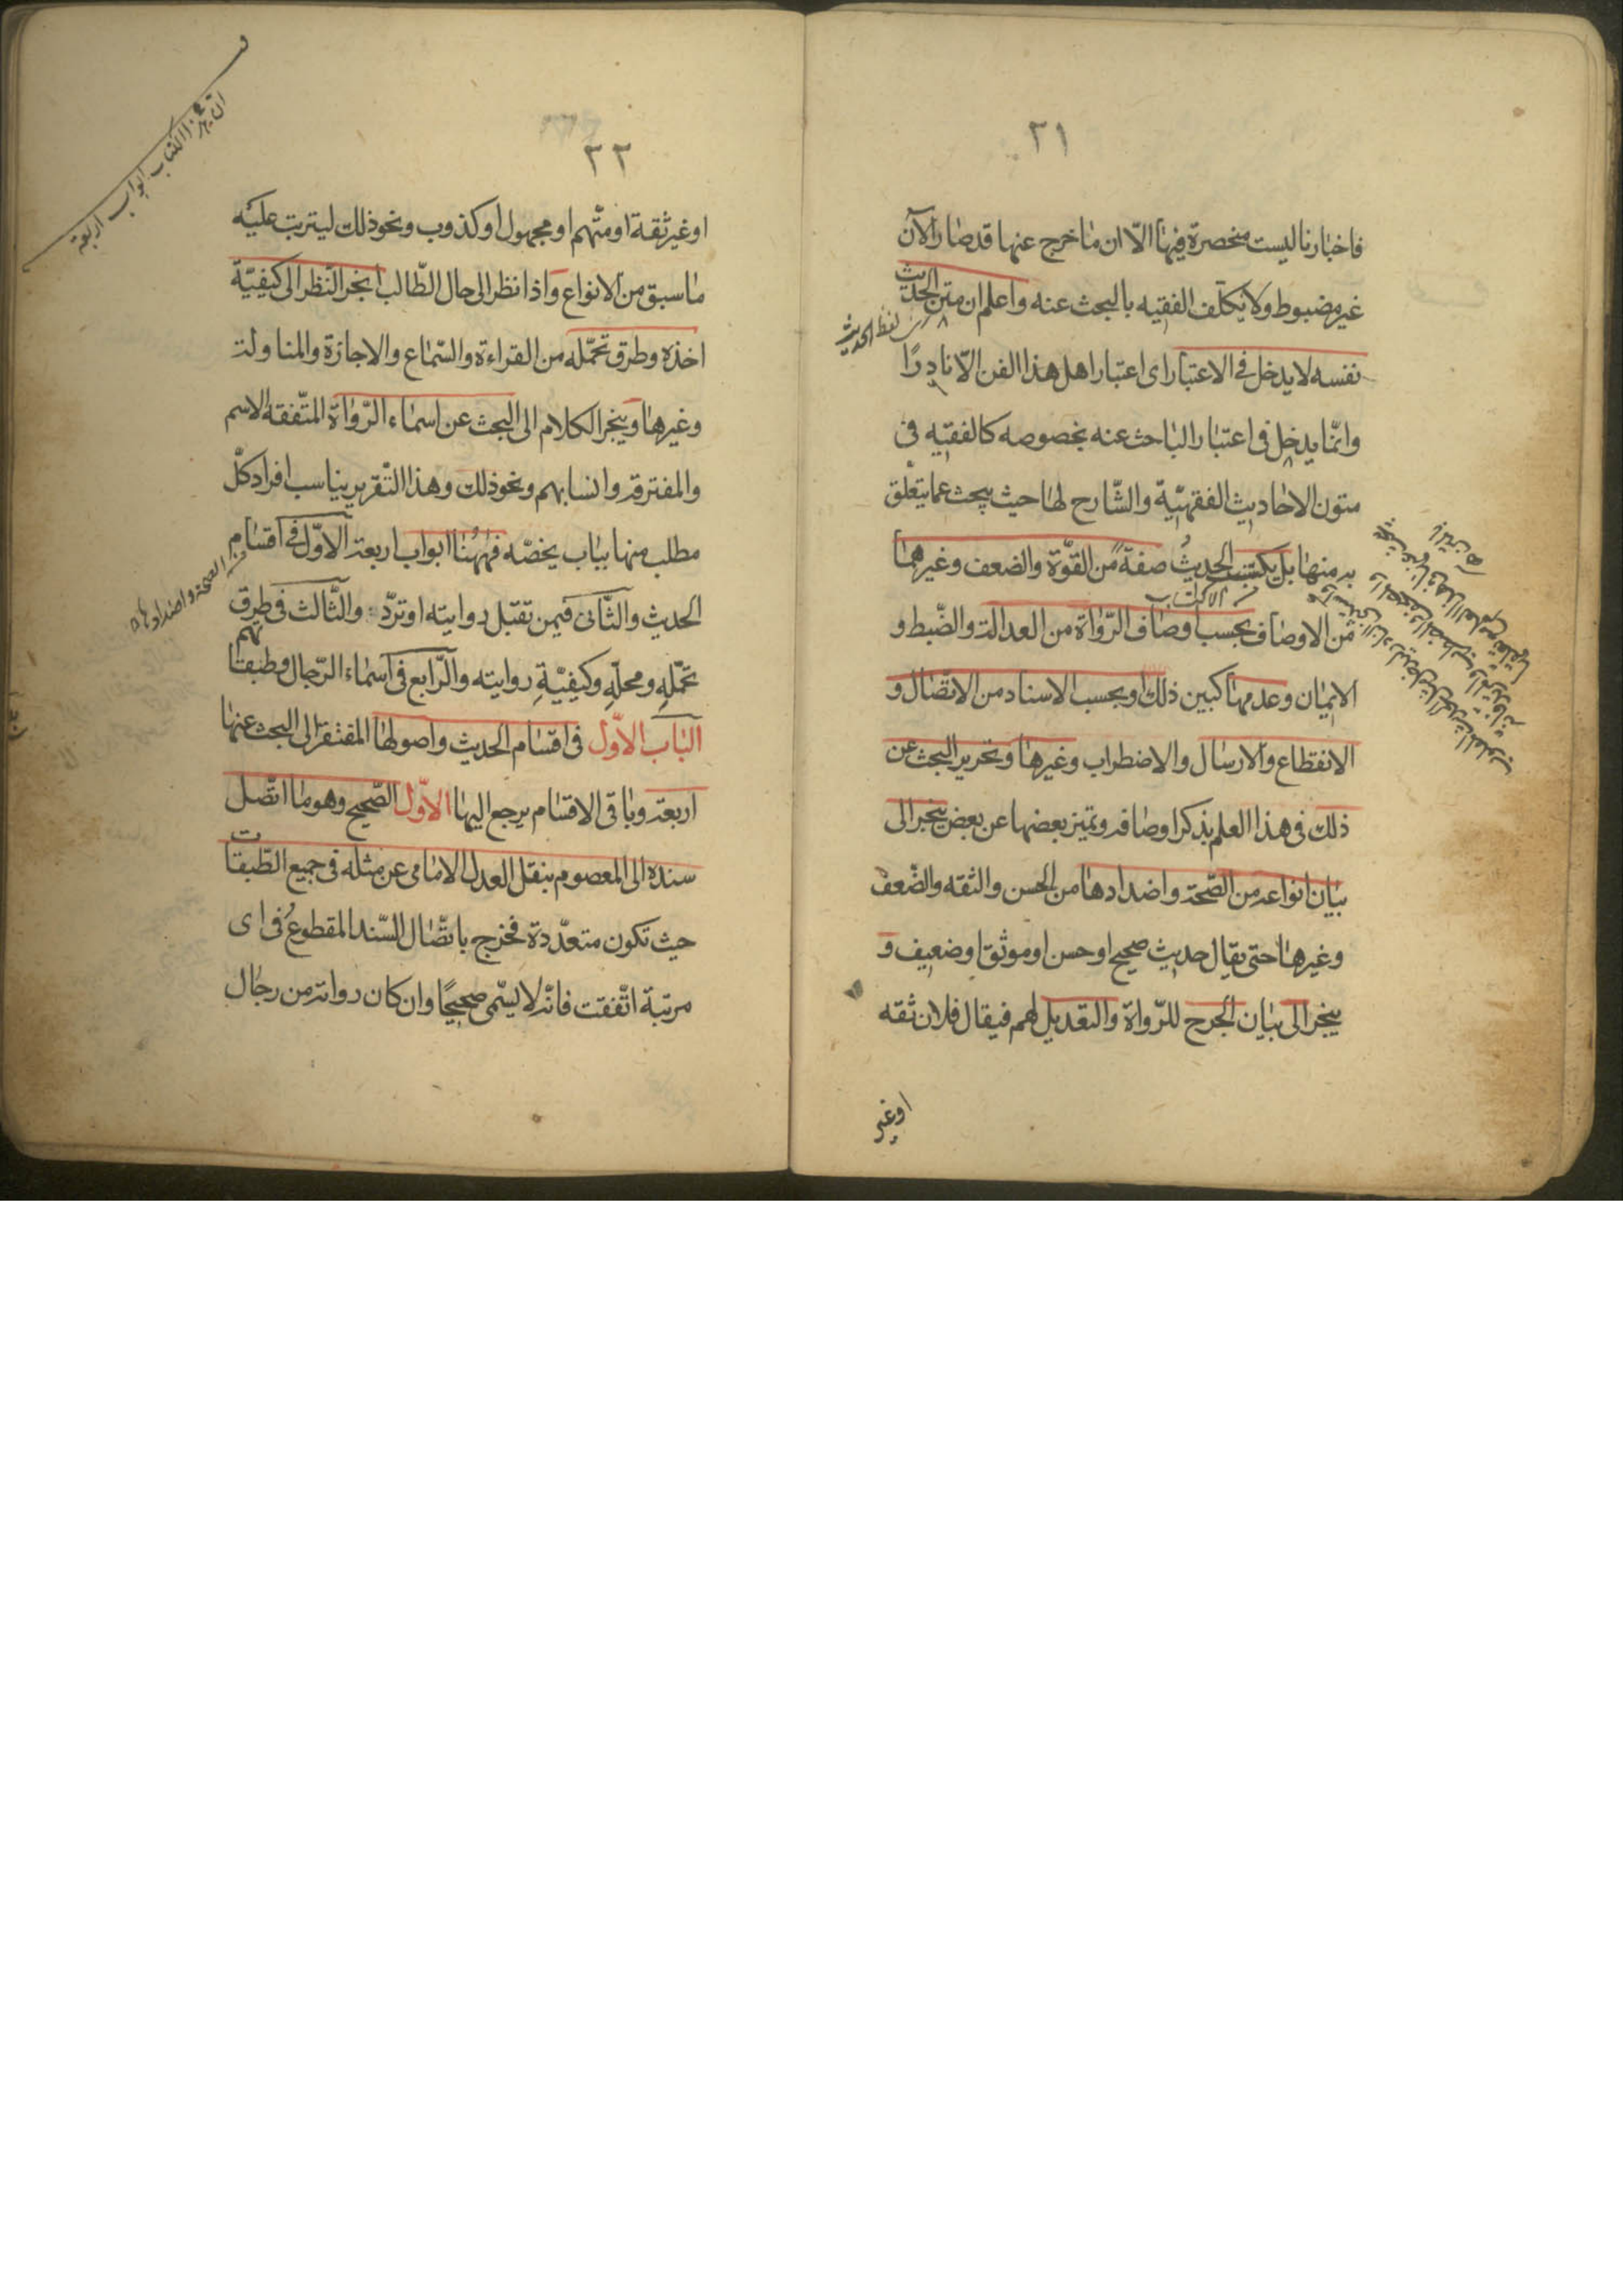 ٢١
فاخبارنا ليست منحصرة فيها الّا ان ما خرج عنها قد صار الآن
غير مضبوط ولا يكلّف الفقيه بالبحث عنه واعلم ان متن الحديث
لفظ الحديث
نفسه لا يدخل في الاعتبار اى اعتبار اهل هذا الفن الّا نادرًا
وانّما يدخل فى اعتبار الباحث عنه بخصوصه كالفقيه فى
متون الاحاديث الفقهيّة والشّارح لها حيث يبحث عما يتعلّق
به منها بل يكتسب الحديثُ صفةً من القوّة والضعف وغيرهما
من الاوصاف بحسب اوصاف الرّواة من العدالة والضّبط و
الايمان وعدمها كبين ذلك او بحسب الاسناد من الاتصال و
الانقطاع والارسال والاضطراب وغيرها وتحرير البحث عن
ذلك فى هذا العلم بذكر اوصافه وتميز بعضها عن بعض ينجر الى
بيان انواعه من الصّحة واضدادها من الحسن والثقه والضّعف
وغيرها حتى يقال حديث صحيح او حسن او موثق او ضعيف و
ينجر الى بيان الجرح للرّواة والتعديل لهم فيقال فلان ثقه
اوغير
٢٢
ان لهذا الكتاب ابواب اربعة
اوغير ثقة او متّهم او مجهول او كذوب ونحو ذلك ليترتب عليه
ما سبق من الانواع واذا نظر الى حال الطّالب انجر النّظر الى كيفيّة
اخذه وطرق تحمّله من القراءة والسّماع والاجازة والمناولة
وغيرها وينجر الكلام الى البحث عن اسماء الرّواة المتّفقه الاسم
والمفترقه وانسابهم ونحو ذلك وهذا التّقرير يناسب افراد كلّ
مطلب منها بباب يخصّه فههُنا ابواب اربعة الاوّل فى اقسام
الصحة واضدادها
الحديث والثّانى فيمن تقبل روايته او تردّ والثّالث فى طرق
تحمّلهِ ومحلّهِ وكيفيّةِ روايته والرّابع فى اسماء الرّجال وطبقاتهم
الباب الاوّل فى اقسام الحديث واصولها المفتقر الى البحث عنها
اربعة وباقى الاقسام يرجع اليها الاوّل الصّحيح وهو ما اتّصل
سنده الى المعصوم بنقل العدل الامامى عن مثله فى جميع الطّبقات
حيث تكون متعدّدة فخرج باتّصال السّند المقطوعُ فى اى
مرتبة اتّفقت فانّه لا يسّمى صحيحًا وان كان رواته من رجال